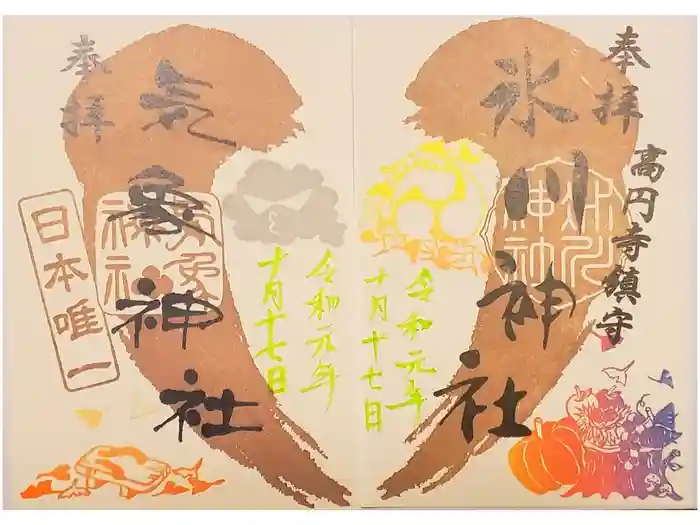 奉拝
氷川神社
高円寺鎮守
氷川神社
令和元年
十月十七日
奉拝
気象神社
日本唯一
気象神社
令和元年
十月十七日